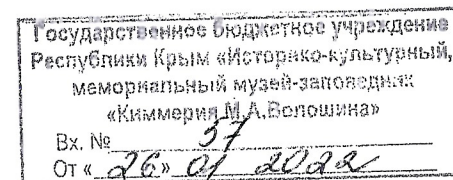 Государственное бюджетное учреждение
Республики Крым «Историко-культурный,
мемориальный музей-заповедник
«Киммерия М.А.Волошина»
Вх. № 37
От « 26 » 01 2022